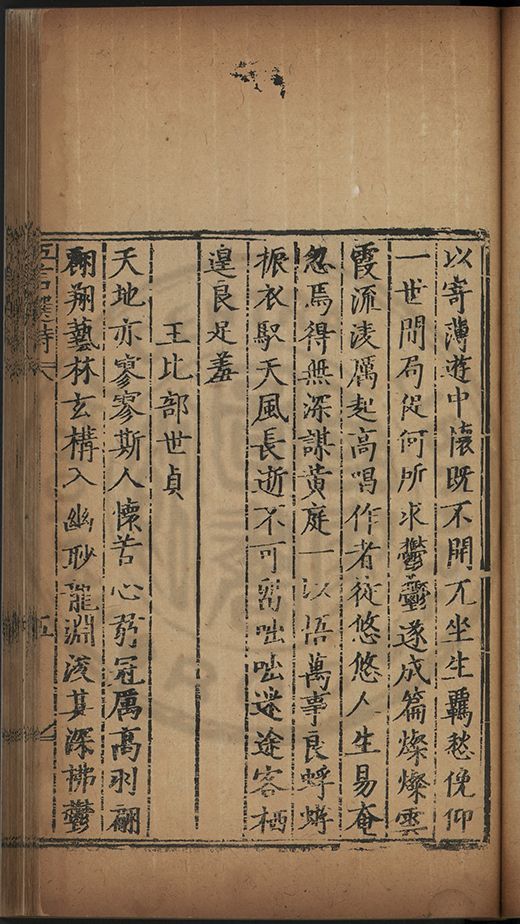 以寄薄遊中懷既不開兀坐生羈愁俛仰
一世間局促何所求鬱鬱遂成篇燦燦雲
霞流凌厲起高唱作者從悠悠人生易奄
忽焉得無深謀黃庭一以悟萬事良蜉蝣
振衣馭天風長逝不可畱咄咄迷途客栖
遑良足羞
王比部世貞
天地亦寥寥斯人懷苦心弱冠厲高羽翩
翱翔藝林玄搆入幽眇龍淵浚其深怫鬱
五言選詩
五